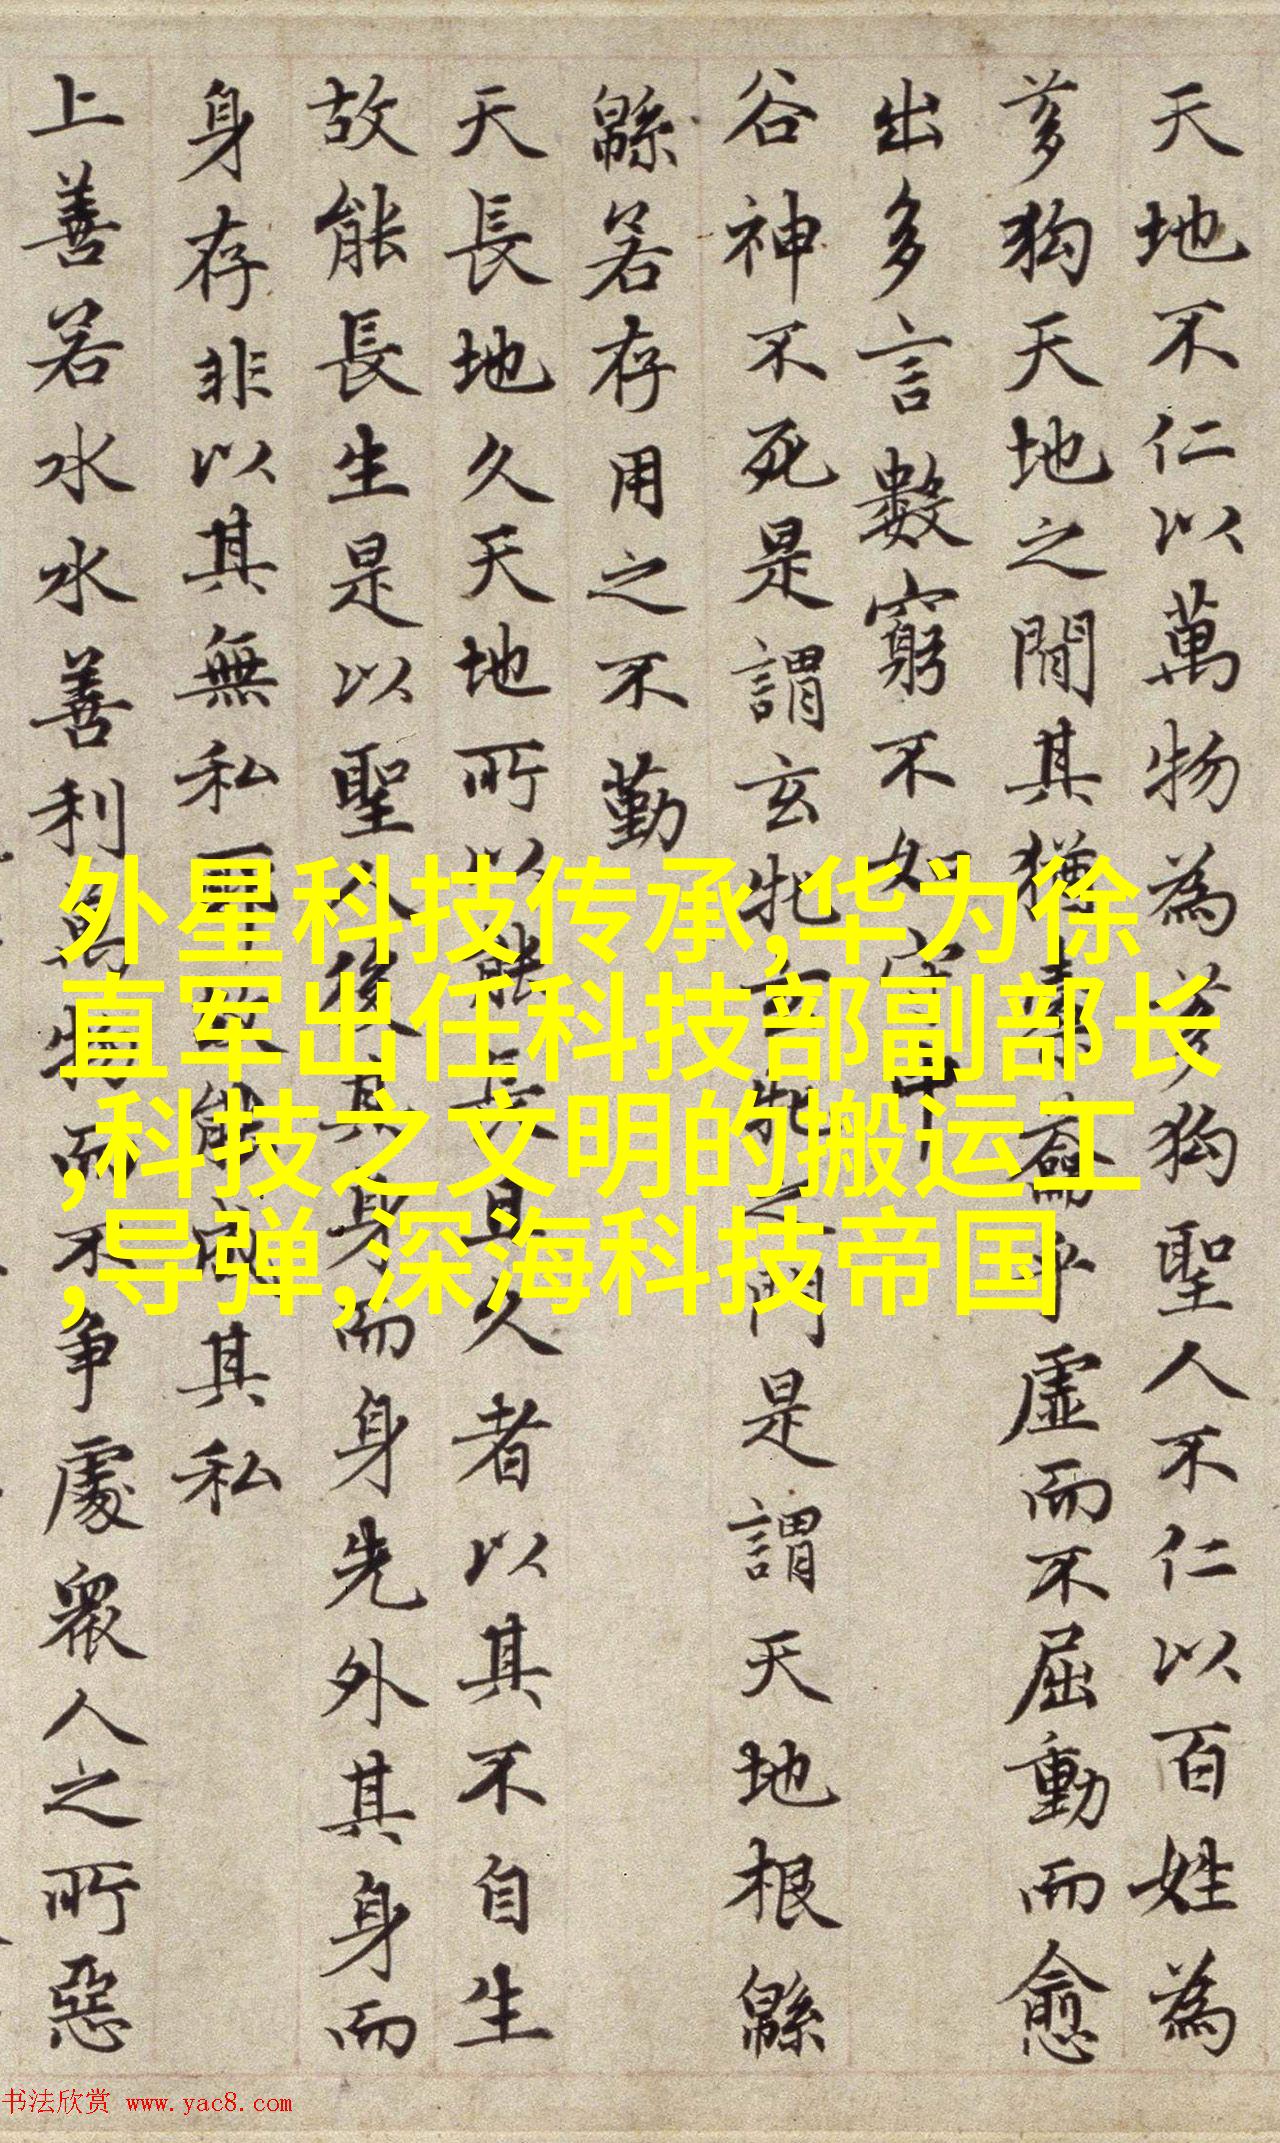 天地不仁以萬物為芻狗聖人不仁以百姓為
芻狗天地之間其猶橐籥乎虛而不屈動而愈
出多言數窮不如守中
谷神不死是謂玄牝玄牝之門是謂天地根緜
緜若存用之不勤
天長地久天地所以能長且久者以其不自生
故能長生是以聖人後其身而身先外其身而
身存非以其無私耶故能成其私
上善若水水善利萬物而不争處衆人之所惡
外星科技传承,华为徐
直军出任科技部副部长
,科技之文明的搬运工
,导弹,深海科技帝国
书法欣赏 www.yac8.com